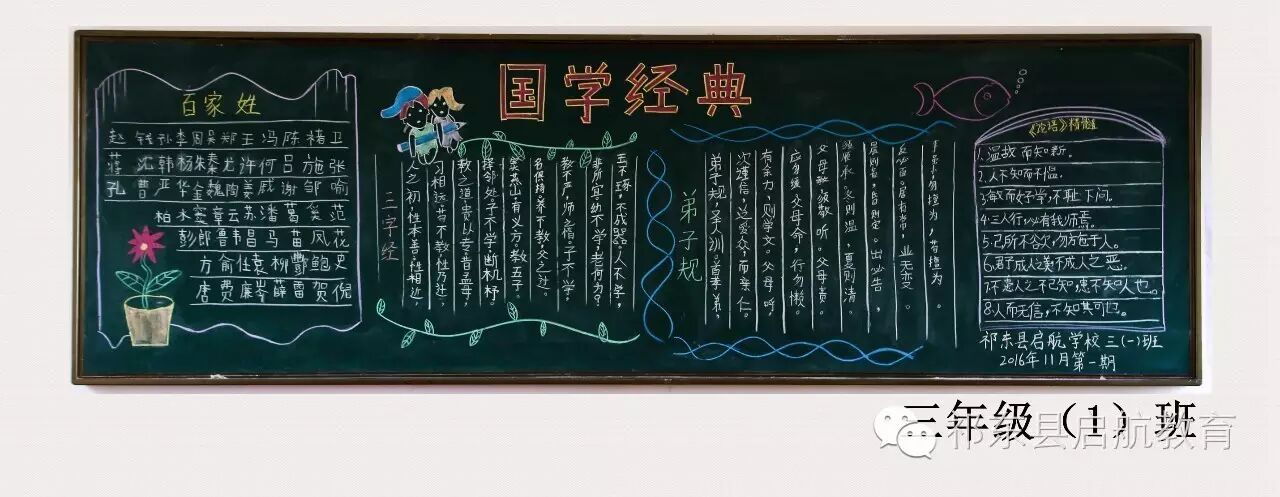 国学经典
百家姓
赵钱孙李周吴郑王冯陈褚卫
蒋沈韩杨朱秦尤许何吕施张
孔曹严华金魏陶姜戚谢邹喻
柏水窦章云苏潘葛奚范
彭郎鲁韦昌马苗凤花
方俞任袁柳酆鲍史
唐费廉岑薛雷贺倪
三字经
人之初,性本善。性相近,
习相远。苟不教,性乃迁,
教之道,贵以专。昔孟母,
择邻处,子不学,断机杼。
窦燕山,有义方,教五子,
名俱扬。养不教,父之过。
教不严,师之惰。子不学,
非所宜。幼不学,老何为?
玉不琢,不成器。人不学,
弟子规
弟子规,圣人训。首孝弟,
次谨信,泛爱众,而亲仁。
有余力,则学文。父母呼,
应勿缓,父母命,行勿懒。
父母教,须敬听。父母责,
须顺承。冬则温,夏则凊。
晨则省,昏则定。出必告,
反必面。居有常,业无变。
事虽小,勿擅为,苟擅为。
《论语》精髓
1.温故而知新。
2.人不知而不愠。
3.敏而好学,不耻下问。
4.三人行,必有我师焉。
5.己所不欲,勿方色于人。
6.君子成人之美不成人之恶。
7.不患人之不己知,患不知人也。
8.人而无信,不知其可也。
祁东县启航学校三(一)班
2016年11月第一期
三年级(1)班
祁东县启航教育